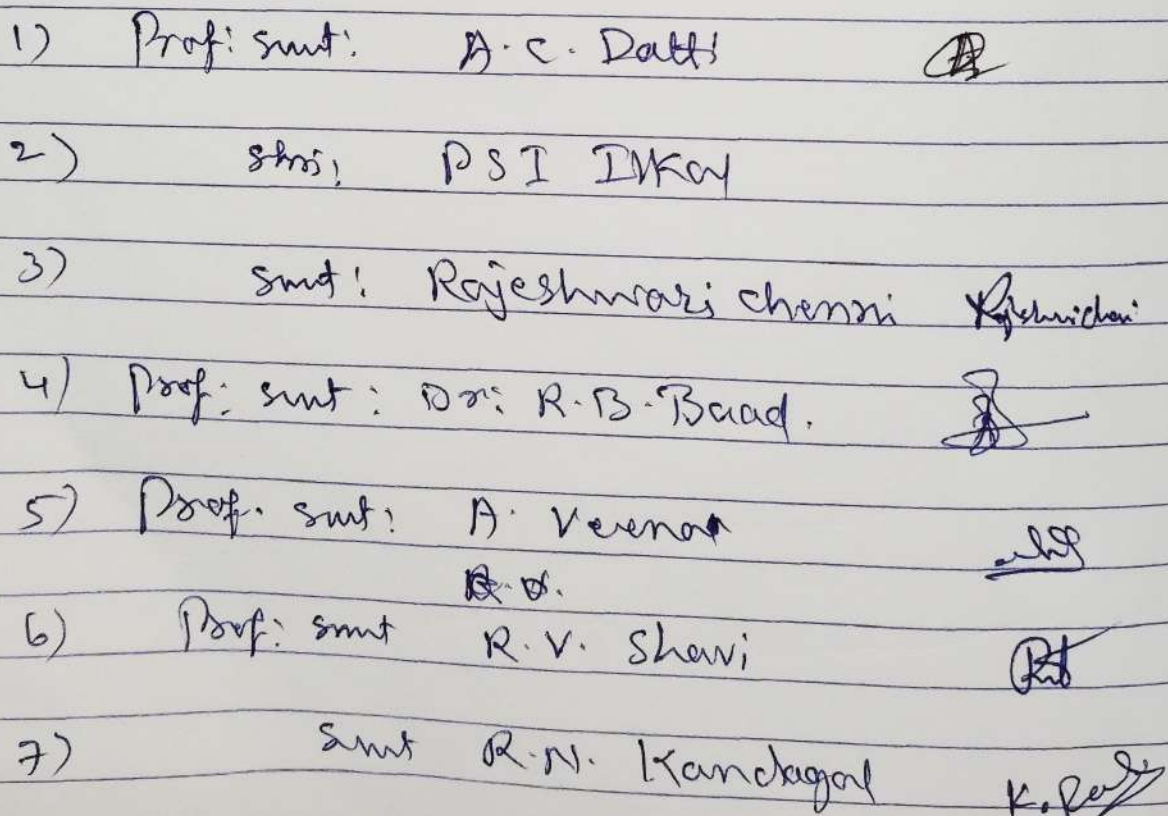 1) Prof: smt: A.C. Datti
2) Shri: PSI Ilkal
3) smt: Rajeshwari chenni
4) Prof: smt: Dr: R.B. Baad.
5) Prof. smt: A. Veena
6) Prof: smt R.V. Shavi
7) smt R.N. Kandagal